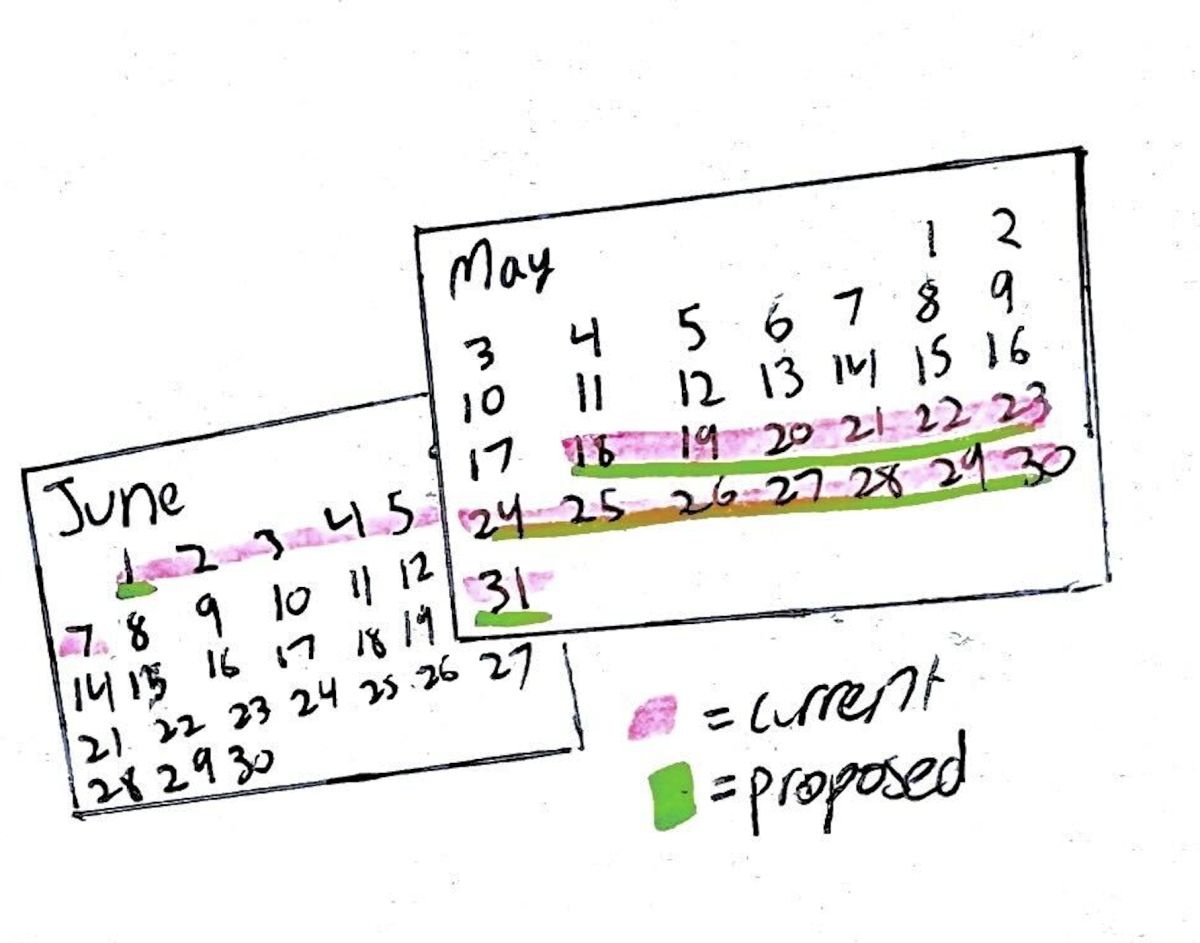 May
1 2
3 4 5 6 7 8 9
10 11 12 13 14 15 16
17 18 19 20 21 22 23
24 25 26 27 28 29 30
31
June
1 2 3 4 5
7 8 9 10 11 12
14 15 16 17 18 19
21 22 23 24 25 26 27
28 29 30
= current
= proposed